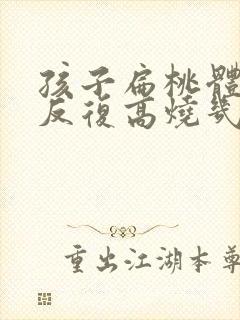 孩子扁桃體
反復高燒幾
重出江湖本尊